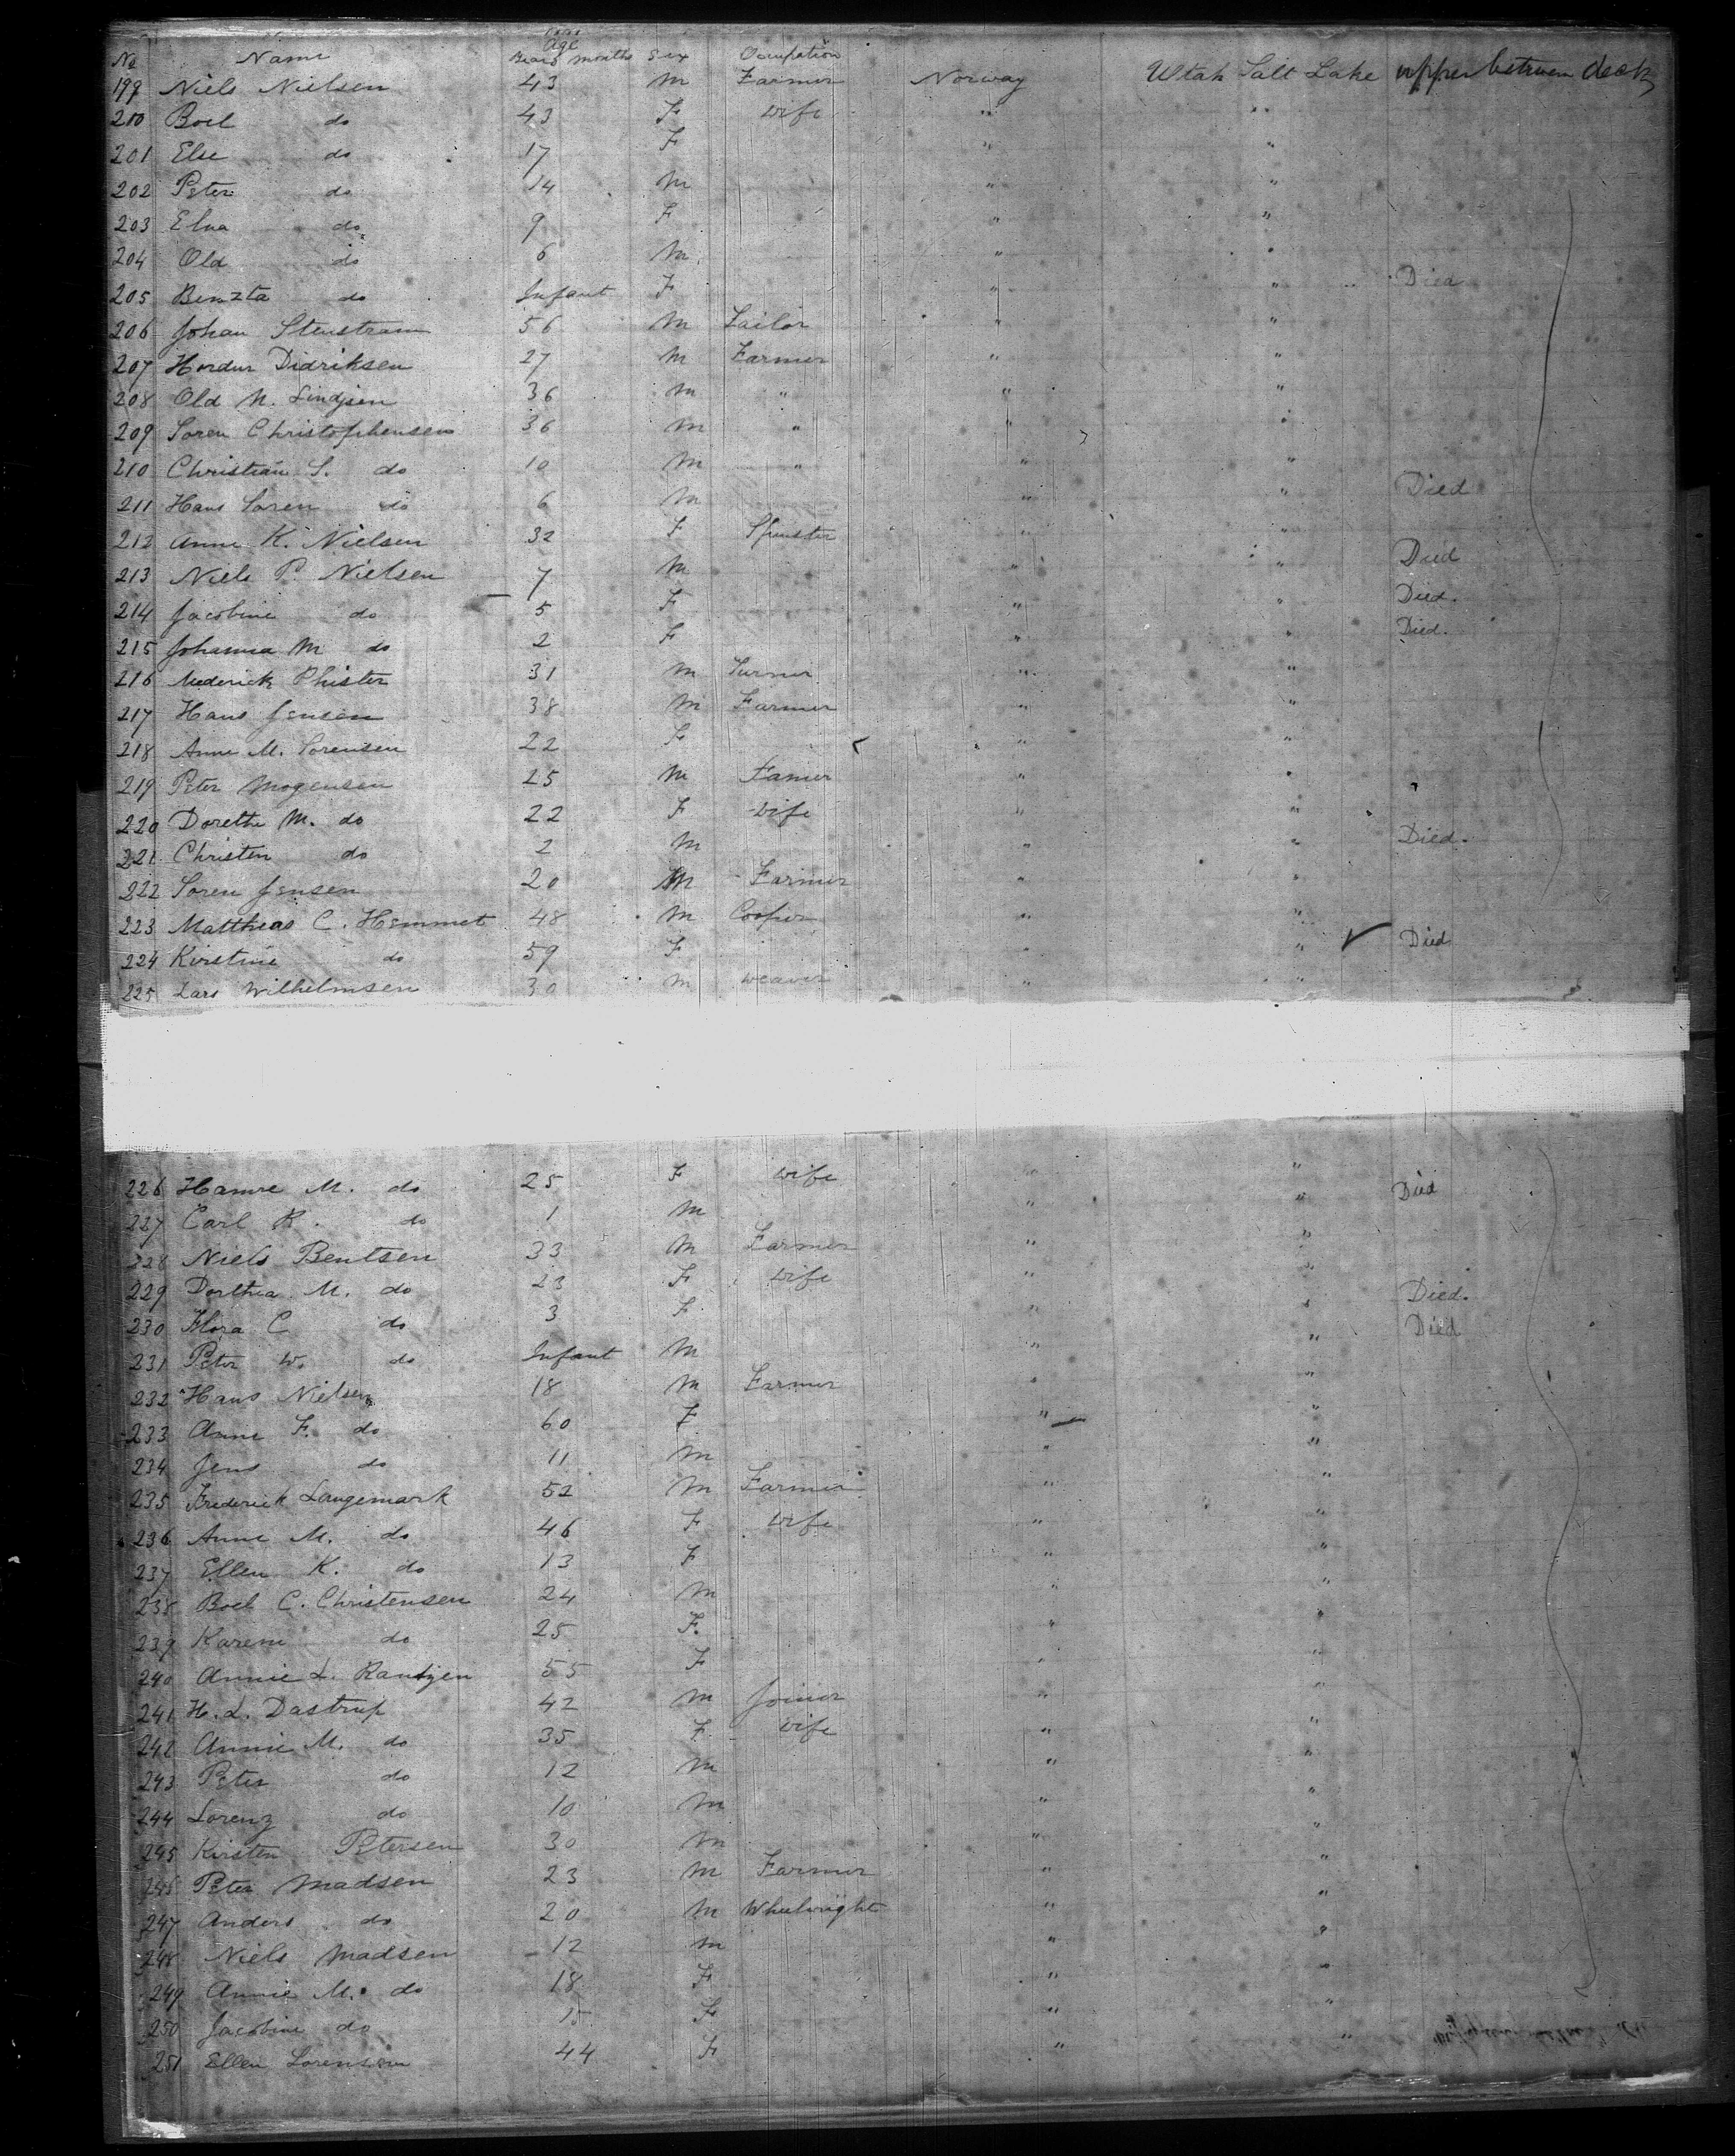 No Name Age Years Months Sex Occupation
199 Niels Nielsen 43 M Farmer Norway Utah Salt Lake upper between deck
210 Boel do 43 F wife " "
201 Else do 17 F " "
202 Peter do 14 M " "
203 Elna do 9 F " "
204 Old do 6 M " "
205 Benzta do Infant F " " Died
206 Johan Stenstram 56 M Tailor " "
207 Hordur Didriksen 27 M Farmer " "
208 Old N. Lindjsen 36 M " " "
209 Soren Christophensen 36 M " " "
210 Christian S. do 10 M " " "
211 Hans Soren do 6 M " " Died
212 Anne K. Nielsen 32 F Spinster " "
213 Niels P. Nielsen 7 M " " Died
214 Jacobine do 5 F " " Died.
215 Johanna M do 2 F " " Died.
216 Phister 31 M Turner " "
217 Hans Jensen 38 M Farmer " "
218 Anne M. Sorensen 22 F " "
219 Peter Mogensen 25 M Famer " "
220 Dorethe M. do 22 F wife " "
221 Christen do 2 M " " Died.
222 Soren Jensen 20 M Farmer " "
223 Matthias C. Hemmet 48 M Cooper " "
224 Kirstine do 59 F " " Died
225 Lars Wilhelmsen 30 M weaver " "
226 Hanne M. do 25 F wife " "
227 Carl R. do 1 M " " Died
228 Niels Bentsen 33 M Farmer " "
229 Dorthea M. do 23 F wife " "
230 Flora C do 3 F " " Died.
231 Peter W. do Infant M " " Died
232 Hans Nielsen 18 M Farmer " "
233 Anne F. do 60 F " "
234 Jens do 11 M " "
235 Frederick Langemark 52 M Farmer " "
236 Anne M. do 46 F wife " "
237 Ellen K. do 13 F " "
238 Boel C. Christensen 24 M " "
239 Karen do 25 F. " "
240 Annie L. Rantzen 55 F " "
241 H. L. Dastrup 42 M Joiner " "
242 Annie M. do 35 F wife " "
243 Peter do 12 M " "
244 Lorenz do 10 M " "
245 Kirsten Petersen 30 M " "
246 Peter Madsen 23 M Farmer " "
247 Anders do 20 M Wheelwright " "
248 Niels Madsen 12 M " "
249 Annie M. do 18 F " "
250 Jacobine do 15 F " "
251 Ellen Lorensen 44 F " "